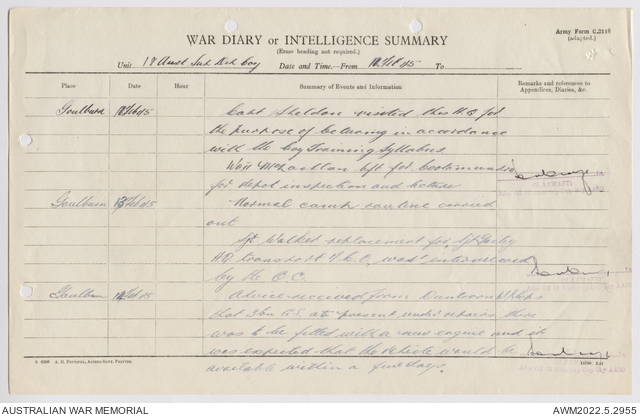 Army Form C.2118
(adapted.)
WAR DIARY or INTELLIGENCE SUMMARY
(Erase heading not required.)
Unit 18 Aust Sup Dep Coy Date and Time—From 12 Feb 45 To
Place Date Hour Summary of Events and Information Remarks and references to Appendices, Diaries, &c.
Goulburn 12 Feb 45 Capt Sheldon visited this H.Q for
the purpose of lecturing in accordance
with the Coy Training Syllabus
WOII McLachlan left for Cootamundra
for depot inspection and lecture
Goulburn 13 Feb 45 Normal camp routine carried
out
Sgt Walker replacement for Sgt
HQ transport N.C.O. was interviewed
by the O.C.
Goulburn 14 Feb 45 Advice received from Duntroon W/shops
that 3 ton at present under repairs there
was to be fitted with a new engine and it
was expected that the vehicle would be
available within a few days.
AUSTRALIAN WAR MEMORIAL
AWM2022.5.2955